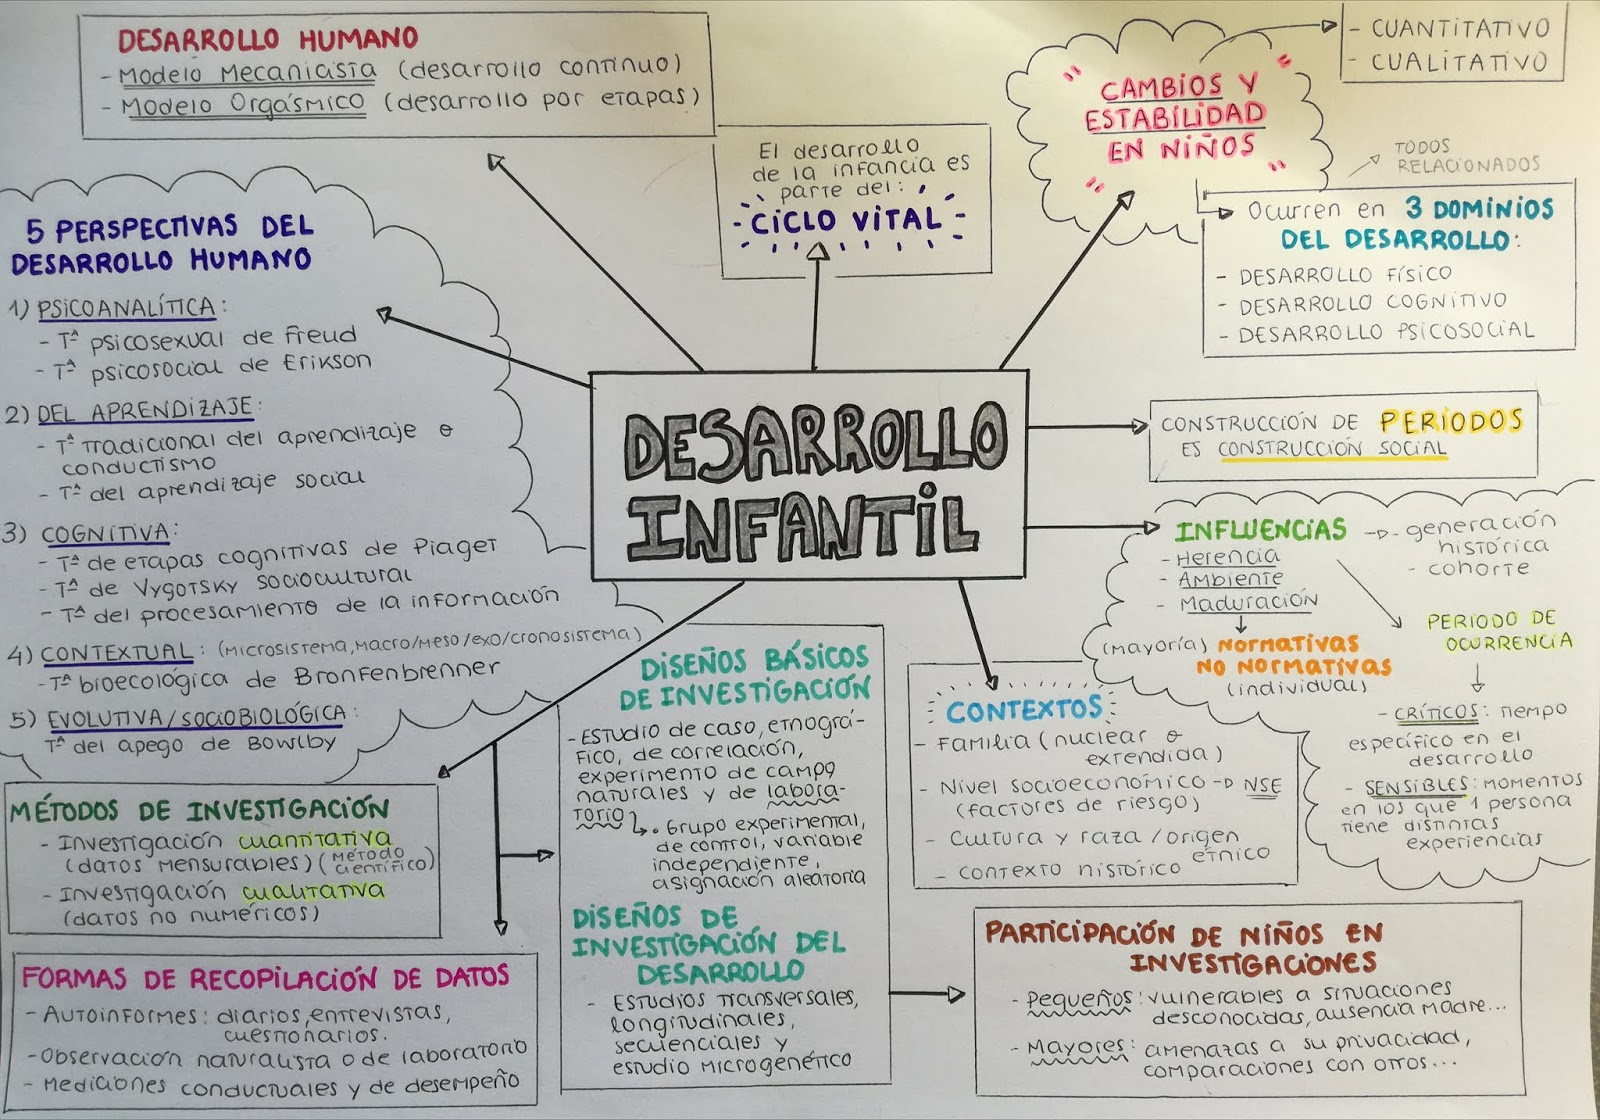 DESARROLLO HUMANO
- Modelo Mecanicista (desarrollo continuo)
- Modelo Orgásmico (desarrollo por etapas)
El desarrollo
de la infancia es
parte del:
CICLO VITAL
" CAMBIOS Y "
ESTABILIDAD
" EN NIÑOS "
- CUANTITATIVO
- CUALITATIVO
TODOS
RELACIONADOS
Ocurren en 3 DOMINIOS
DEL DESARROLLO:
- DESARROLLO FÍSICO
- DESARROLLO COGNITIVO
- DESARROLLO PSICOSOCIAL
5 PERSPECTIVAS DEL
DESARROLLO HUMANO
1) PSICOANALÍTICA:
- Tª psicosexual de Freud
- Tª psicosocial de Erikson
2) DEL APRENDIZAJE:
- Tª Tradicional del aprendizaje o
conductismo
- Tª del aprendizaje social
3) COGNITIVA:
- Tª de etapas cognitivas de Piaget
- Tª de Vygotsky sociocultural
- Tª del procesamiento de la información
4) CONTEXTUAL: (Microsistema, macro/meso/exo/cronosistema)
- Tª bioecológica de Bronfenbrenner
5) EVOLUTIVA/SOCIOBIOLÓGICA:
Tª del apego de Bowlby
DESARROLLO
INFANTIL
CONSTRUCCIÓN DE PERIODOS
ES CONSTRUCCIÓN SOCIAL
INFLUENCIAS
- generación
histórica
- cohorte
- Herencia
- Ambiente
- Maduración
(mayoría) NORMATIVAS
NO NORMATIVAS
(individual)
PERIODO DE
OCURRENCIA
- CRÍTICOS: tiempo
específico en el
desarrollo
- SENSIBLES: MOMENTOS
en los que 1 persona
tiene distintas
experiencias
CONTEXTOS
- Familia (nuclear o
extendida)
- Nivel socioeconómico → NSE
(factores de riesgo)
- Cultura y raza / origen
étnico
- Contexto histórico
DISEÑOS BÁSICOS
DE INVESTIGACIÓN
- Estudio de caso, etnográ-
fico, de correlación,
experimento de campo
naturales y de labora-
torio
• Grupo experimental,
de control, variable
independiente,
asignación aleatoria
DISEÑOS DE
INVESTIGACIÓN DEL
DESARROLLO
- Estudios transversales,
longitudinales,
secuenciales y
estudio microgenético
MÉTODOS DE INVESTIGACIÓN
- Investigación cuantitativa
(datos mensurables) (método científico)
- Investigación cualitativa
(datos no numéricos)
FORMAS DE RECOPILACIÓN DE DATOS
- Autoinformes: diarios, entrevistas,
cuestionarios.
- Observación naturalista o de laboratorio
- Mediciones conductuales y de desempeño
PARTICIPACIÓN DE NIÑOS EN
INVESTIGACIONES
- Pequeños: vulnerables a situaciones
desconocidas, ausencia madre...
- Mayores: amenazas a su privacidad,
comparaciones con otros...